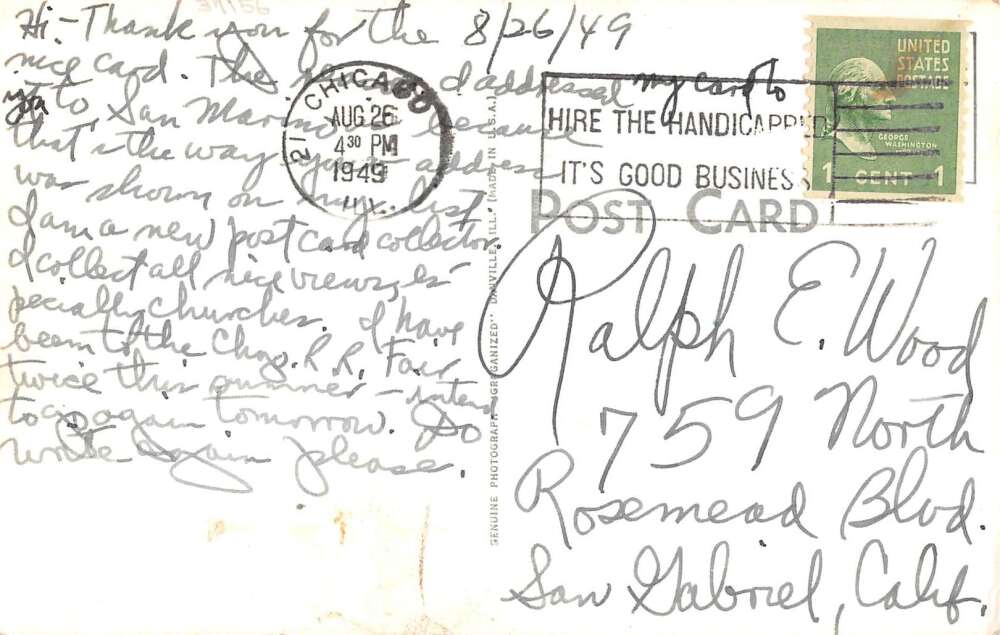 37156
Hi - Thank you for the 8/26/49
nice card. The reason I addressed my card to
you to San Marino is because
that's the way your address
was shown on my list.
I am a new post card collector.
I collect all nice views, es-
pecially churches. I have
been to the Chgo. R.R. Fair
twice this summer - intend
to go again tomorrow. Do
write again please.
CHICAGO
AUG 26
4 30 PM
1949
ILL.
12
HIRE THE HANDICAPPED
IT'S GOOD BUSINESS
UNITED
STATES
POSTAGE
GEORGE
WASHINGTON
1 CENT 1
POST CARD
GENUINE PHOTOGRAPH "GRAGANIZED" DANVILLE, ILL. (MADE IN U.S.A.)
Ralph E. Wood
759 North
Rosemead Blvd.
San Gabriel, Calif.